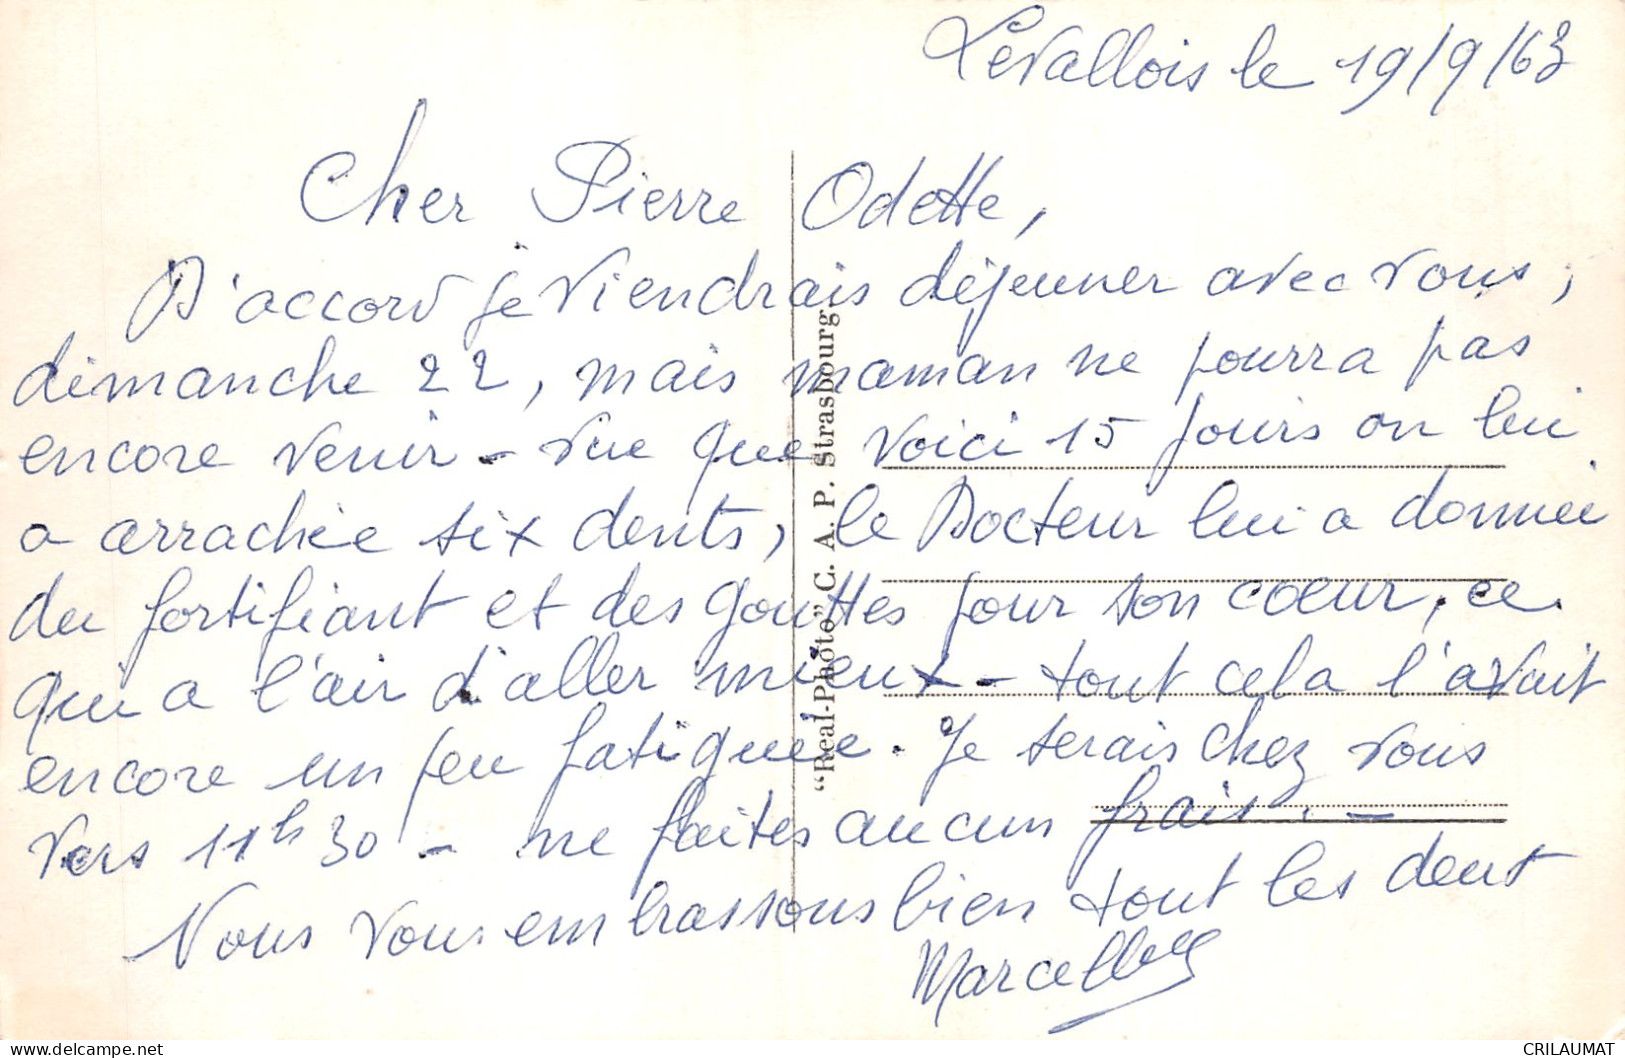 Levallois le 19/9/63
Cher Pierre Odette,
D'accord je viendrais déjeuner avec vous,
dimanche 22, mais maman ne pourra pas
encore venir - vue que voici 15 jours on lui
a arrachée six dents, le Docteur lui a donnée
du fortifiant et des gouttes pour son coeur, ce
qui a l'air d'aller mieux - tout cela l'avait
encore un peu fatiguée. Je serais chez vous
vers 11h30 - ne faites aucun frais. -
Nous vous embrassons bien tout les deux
Marcelle
"Real-Photo" C. A. P. Strasbourg
delcampe.net
CRILAUMAT